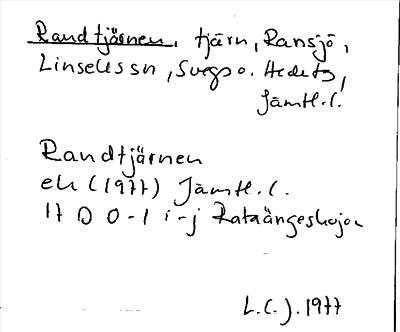 Randtjärnen, tjärn, Ransjö,
Linsells sn, Svegs o. Hedets,
Jämtl. l.
Randtjärnen
ek (1977) Jämtl. l.
17 D 0-1 i-j Rataängeshojon
L.C.J. 1977